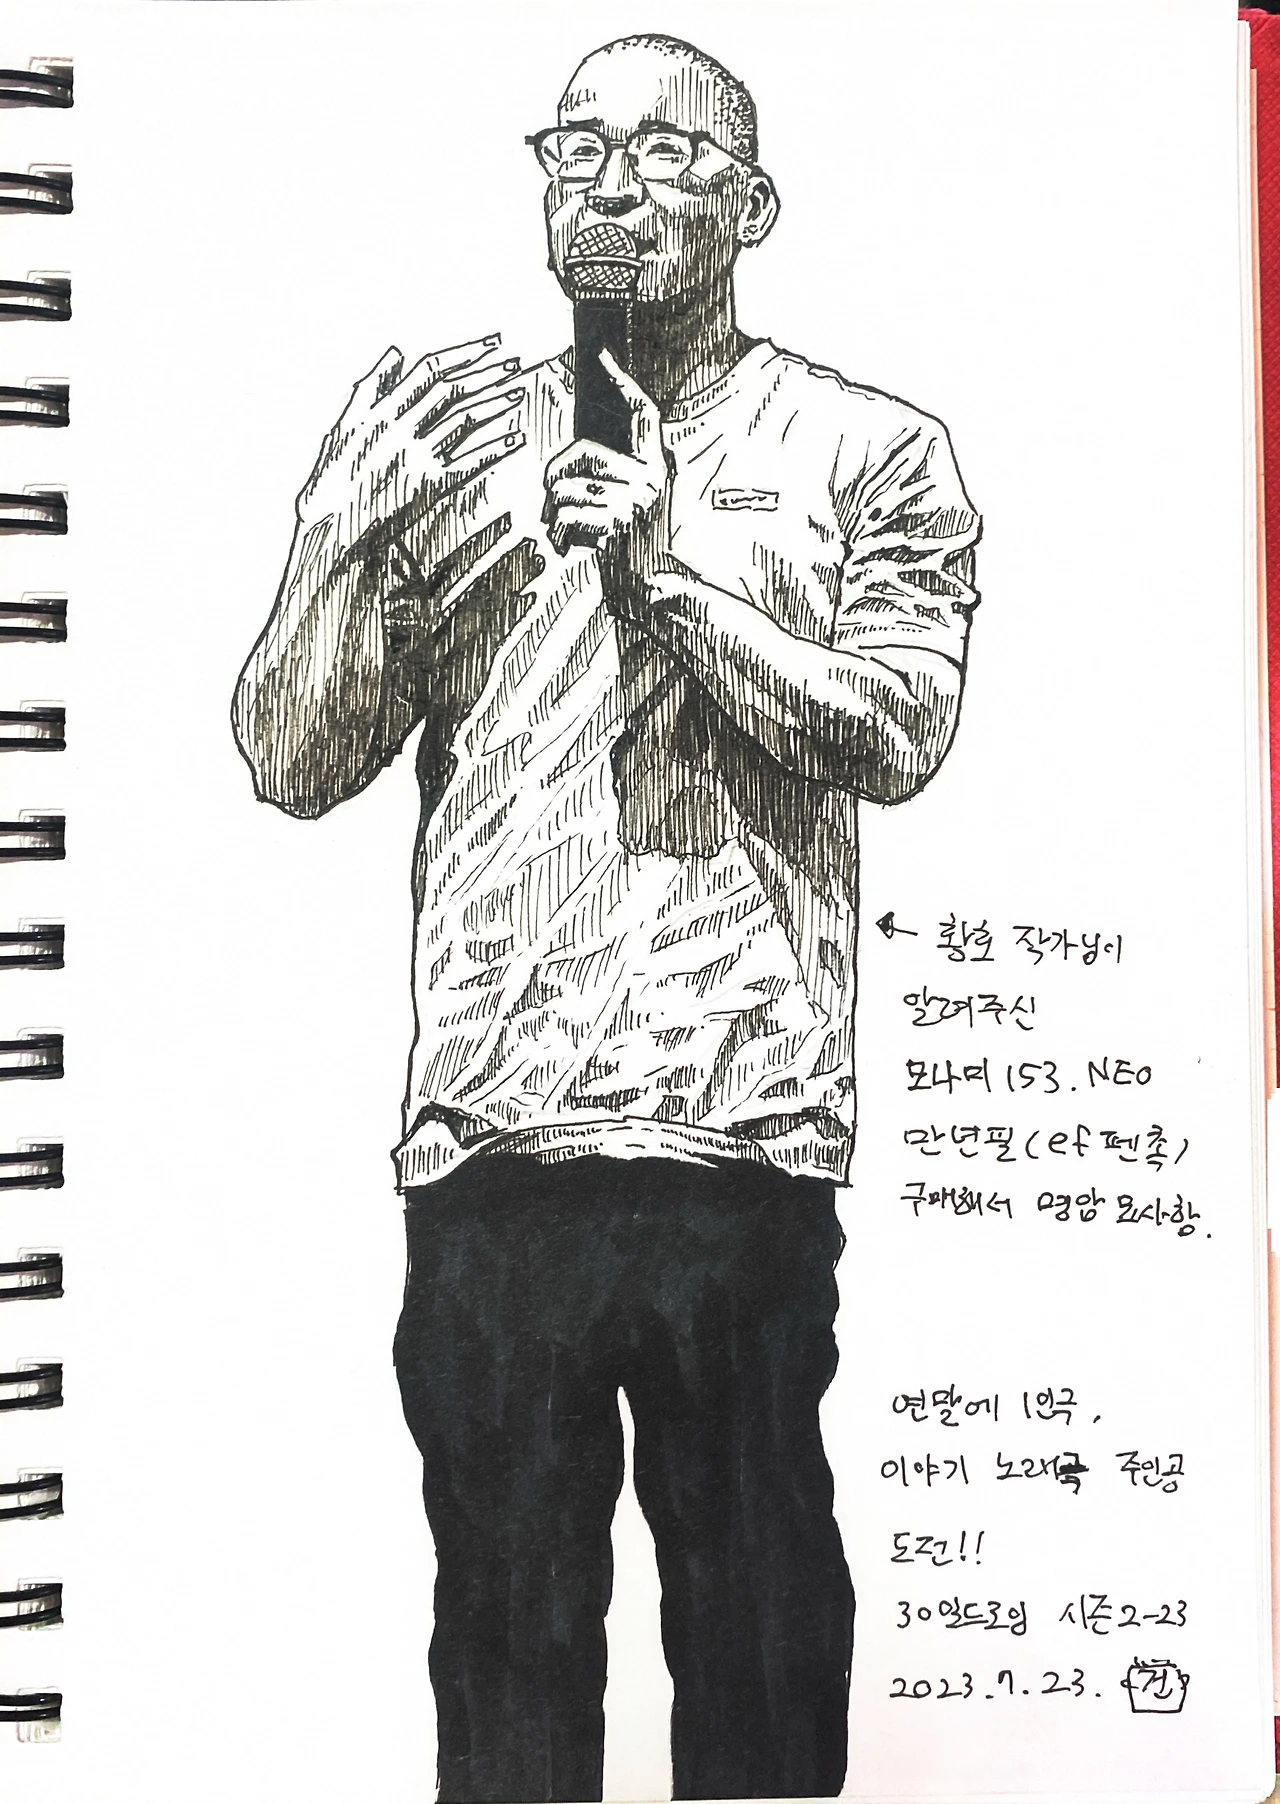 황호 작가님이
알려주신
모나미 153. NEO
만년필(ef 펜촉)
구매해서 명암 묘사함.
연말에 1인극,
이야기 노래극 주인공
도전!!
30일드로잉 시즌2-23
2023.7.23. 건